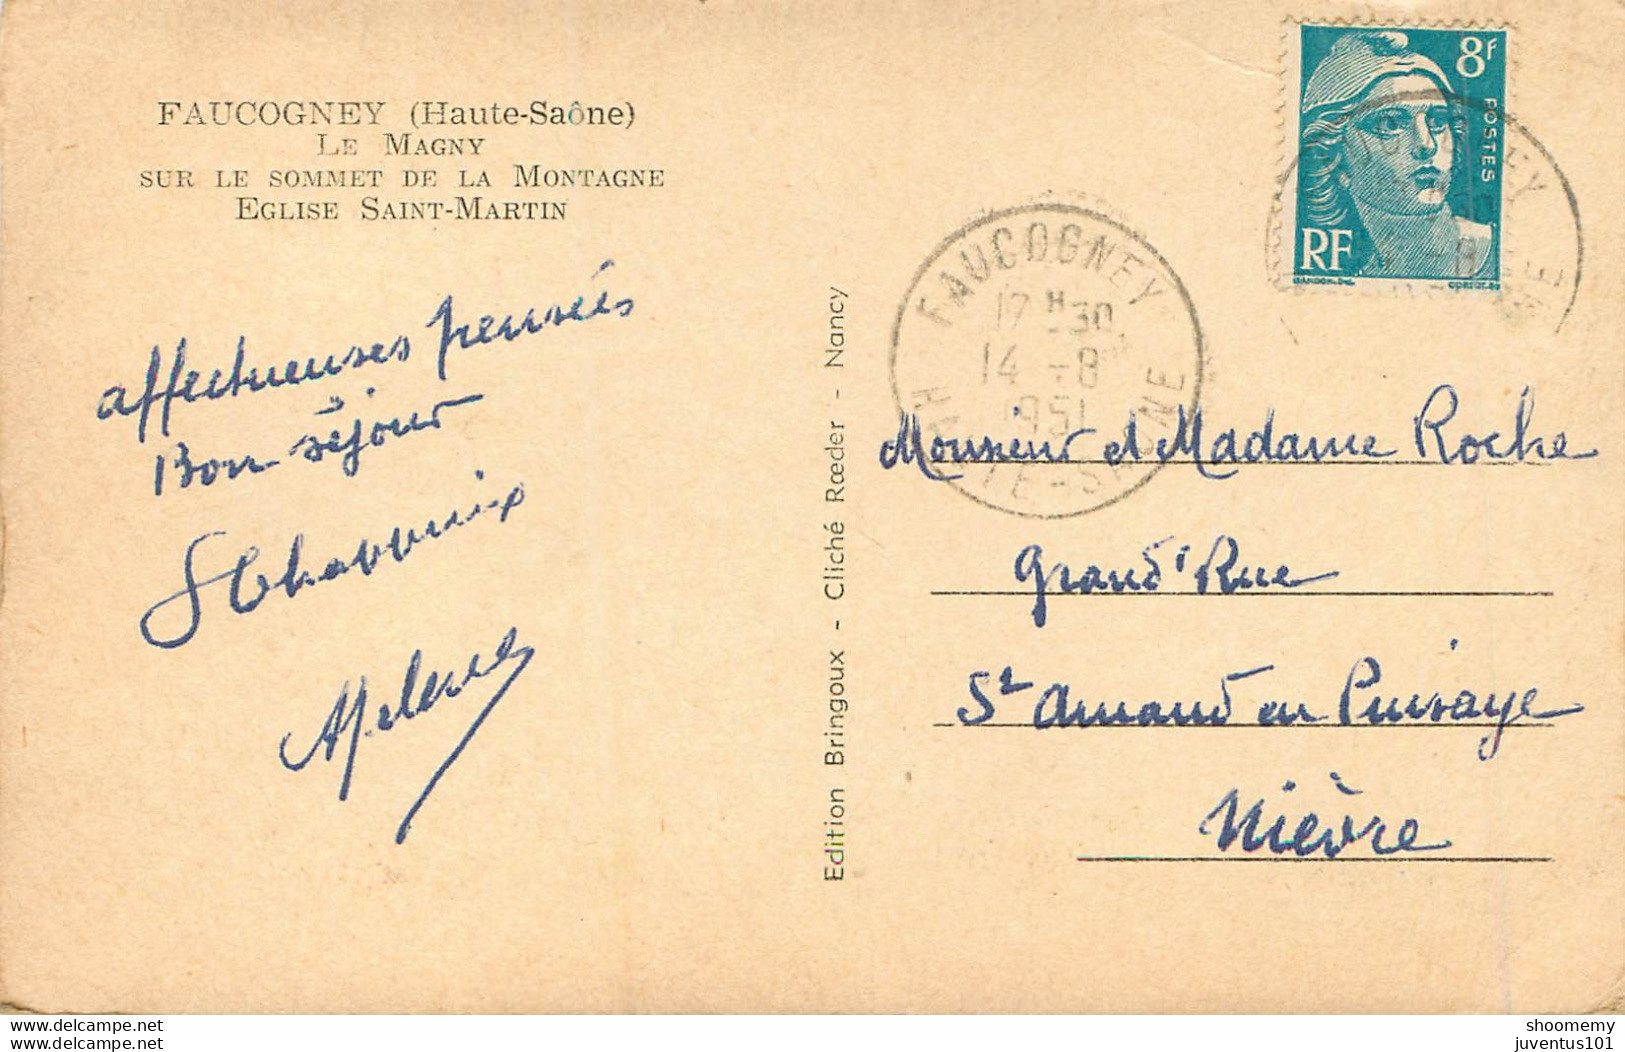 FAUCOGNEY (Haute-Saône)
LE MAGNY
SUR LE SOMMET DE LA MONTAGNE
EGLISE SAINT-MARTIN
affectueuses pensées
Bon séjour
Edition Bringoux - Cliché Rœder - Nancy
8f
POSTES
RF
FAUCOGNEY
17H30
14-8
1951
HAUTE-SAÔNE
Monsieur et Madame Roche
Grand'Rue
St Amand en Puisaye
Nièvre
www.delcampe.net
shoomemy
juventus101